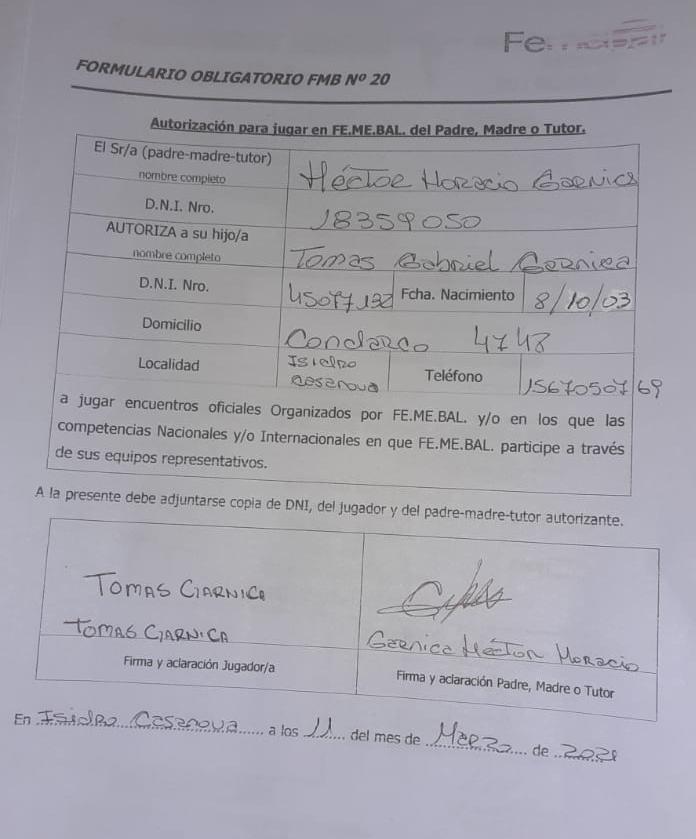 Femebal
FORMULARIO OBLIGATORIO FMB Nº 20
Autorización para jugar en FE.ME.BAL. del Padre, Madre o Tutor.
El Sr/a (padre-madre-tutor)
nombre completo
Héctor Horacio Garnica
D.N.I. Nro.
18359050
AUTORIZA a su hijo/a
nombre completo
Tomas Gabriel Garnica
D.N.I. Nro.
45077132
Fcha. Nacimiento
8/10/03
Domicilio
Condarco 4748
Localidad
Isidro
Casanova
Teléfono
1567050769
a jugar encuentros oficiales Organizados por FE.ME.BAL. y/o en los que las
competencias Nacionales y/o Internacionales en que FE.ME.BAL. participe a través
de sus equipos representativos.
A la presente debe adjuntarse copia de DNI, del jugador y del padre-madre-tutor autorizante.
TOMAS GARNICA
TOMAS GARNICA
Firma y aclaración Jugador/a
Garnica Héctor Horacio
Firma y aclaración Padre, Madre o Tutor
En Isidro Casanova a los 11 del mes de Marzo de